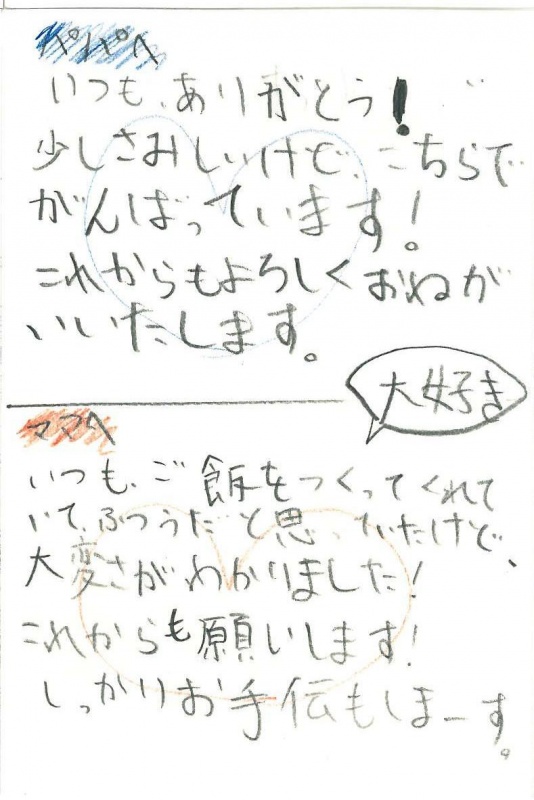 パパへ
いつも、ありがとう!
少しさみしいけど、こちらで
がんばっています!
これからもよろしくおねが
いいたします。
大好き
ママへ
いつも、ご飯をつくってくれて
いて、ふつうだと思っていたけど、
大変さがわかりました!
これからも願いします!
しっかりお手伝もしまーす。